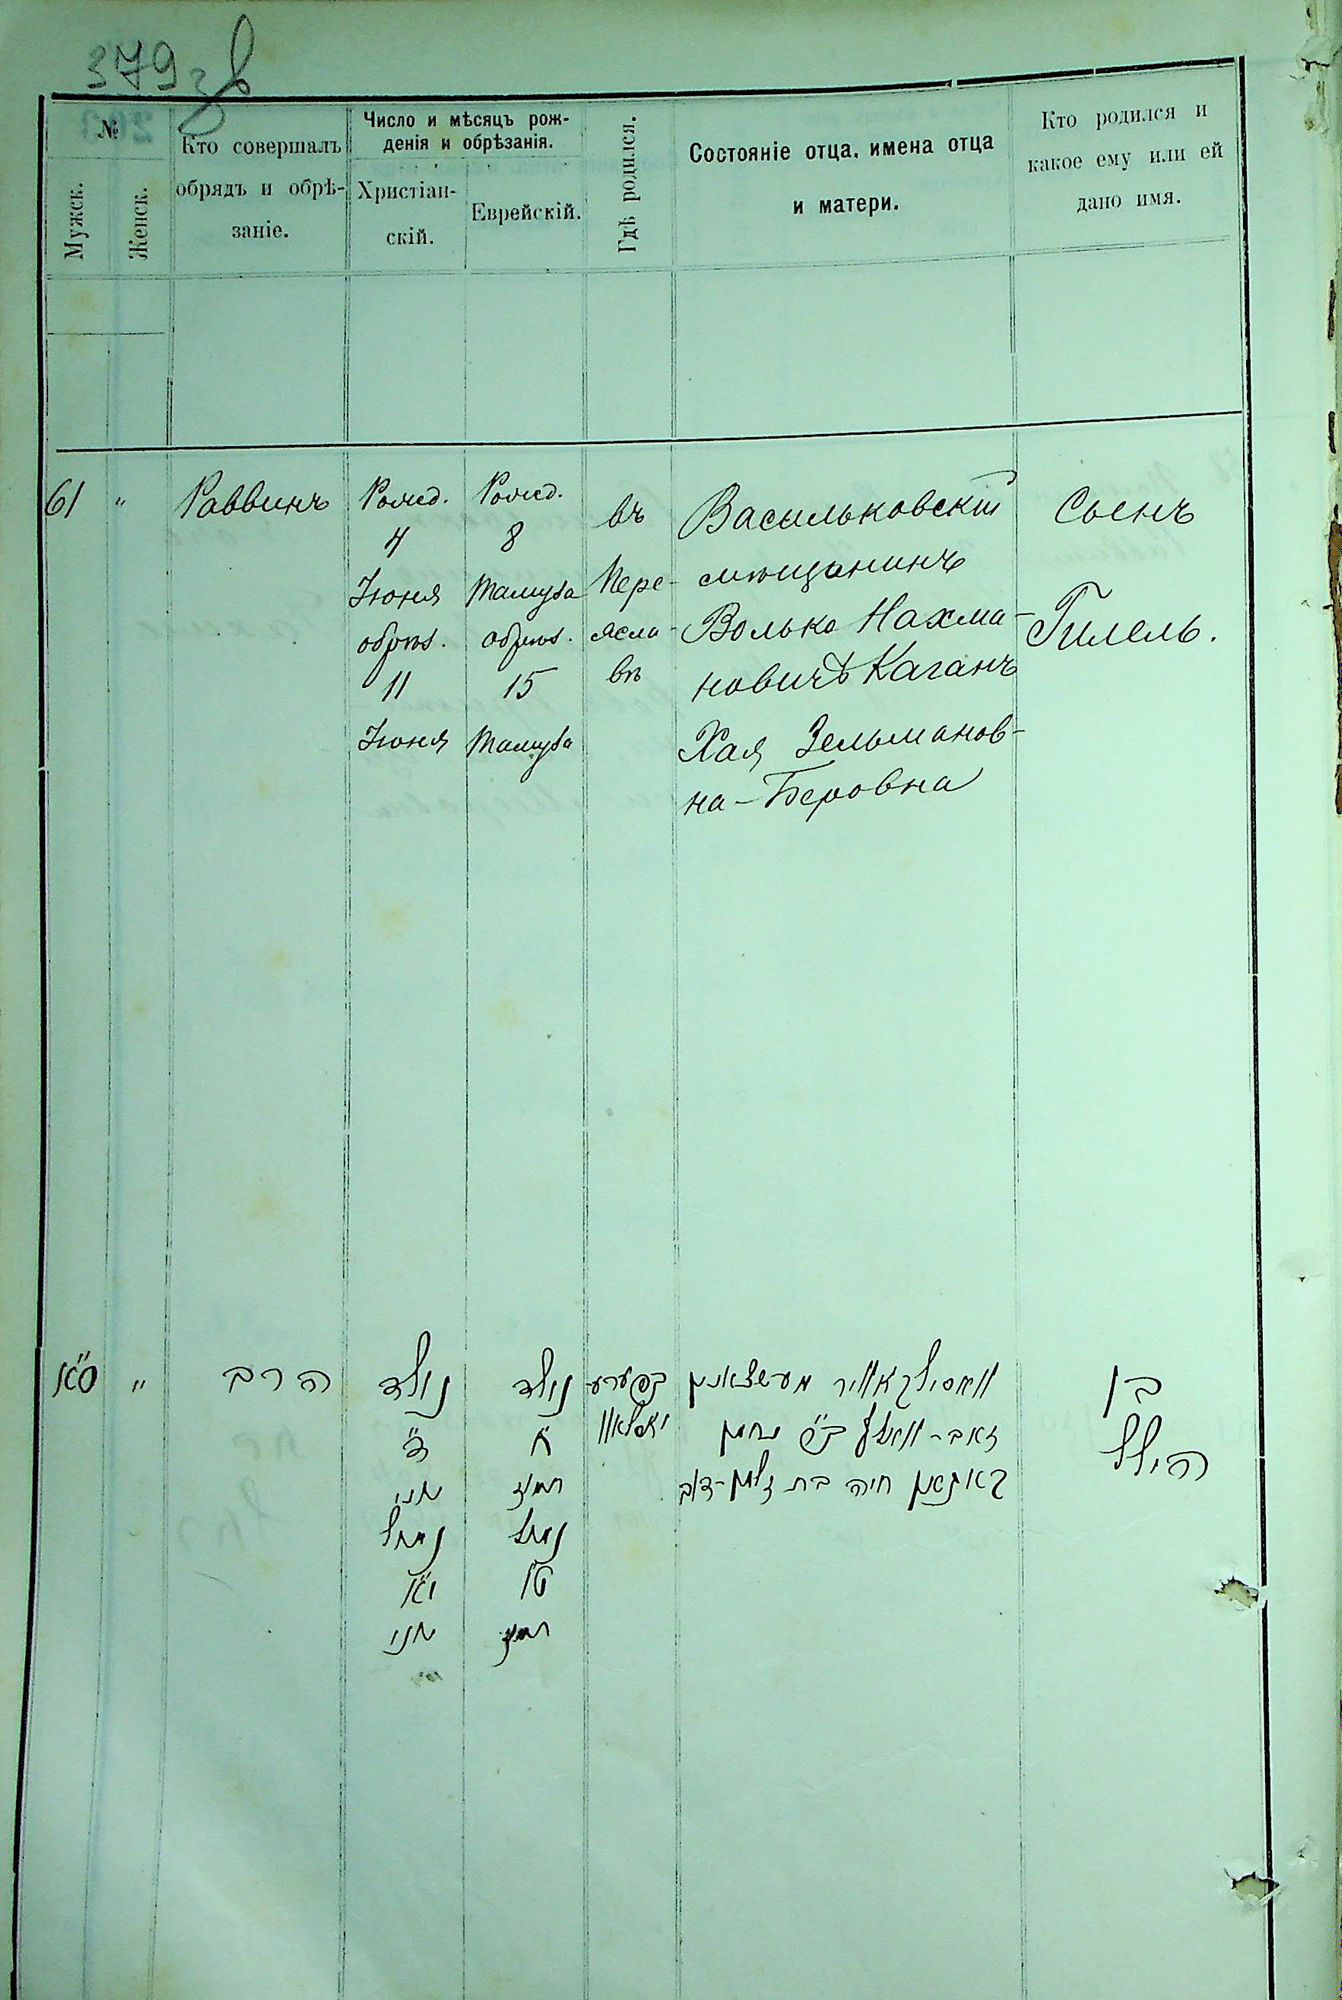 379 зв
№
Мужск.
Женск.
Кто совершалъ
обрядъ и обрѣ-
заніе.
Число и мѣсяцъ рож-
денія и обрѣзанія.
Христіан-
скій.
Еврейскій.
Гдѣ родился.
Состояніе отца, имена отца
и матери.
Кто родился и
какое ему или ей
дано имя.
61 "
Раввинъ
Рожд.
4
Іюня
обрѣз.
11
Іюня
Рожд.
8
Тамуза
обрѣз.
15
Тамуза
въ
Пере-
ясла-
вѣ
Васильковскій
мѣщанинъ
Волько Нахма-
новичъ Каганъ
Хая Зельманов-
на-Беровна
Сынъ
Гилель.
ס"א "
הרב
נולד
ד"
יוני
נמול
י"א
יוני
נולד
ח'
תמוז
נמול
ט"ו
תמוז
בפערע-
יאסלאוו
וואסילקאוויר מעשצאנין
זאב-וואלף ב"ר נחמן
קאגאן חיה בת זלמן-דוב
בן
הילל